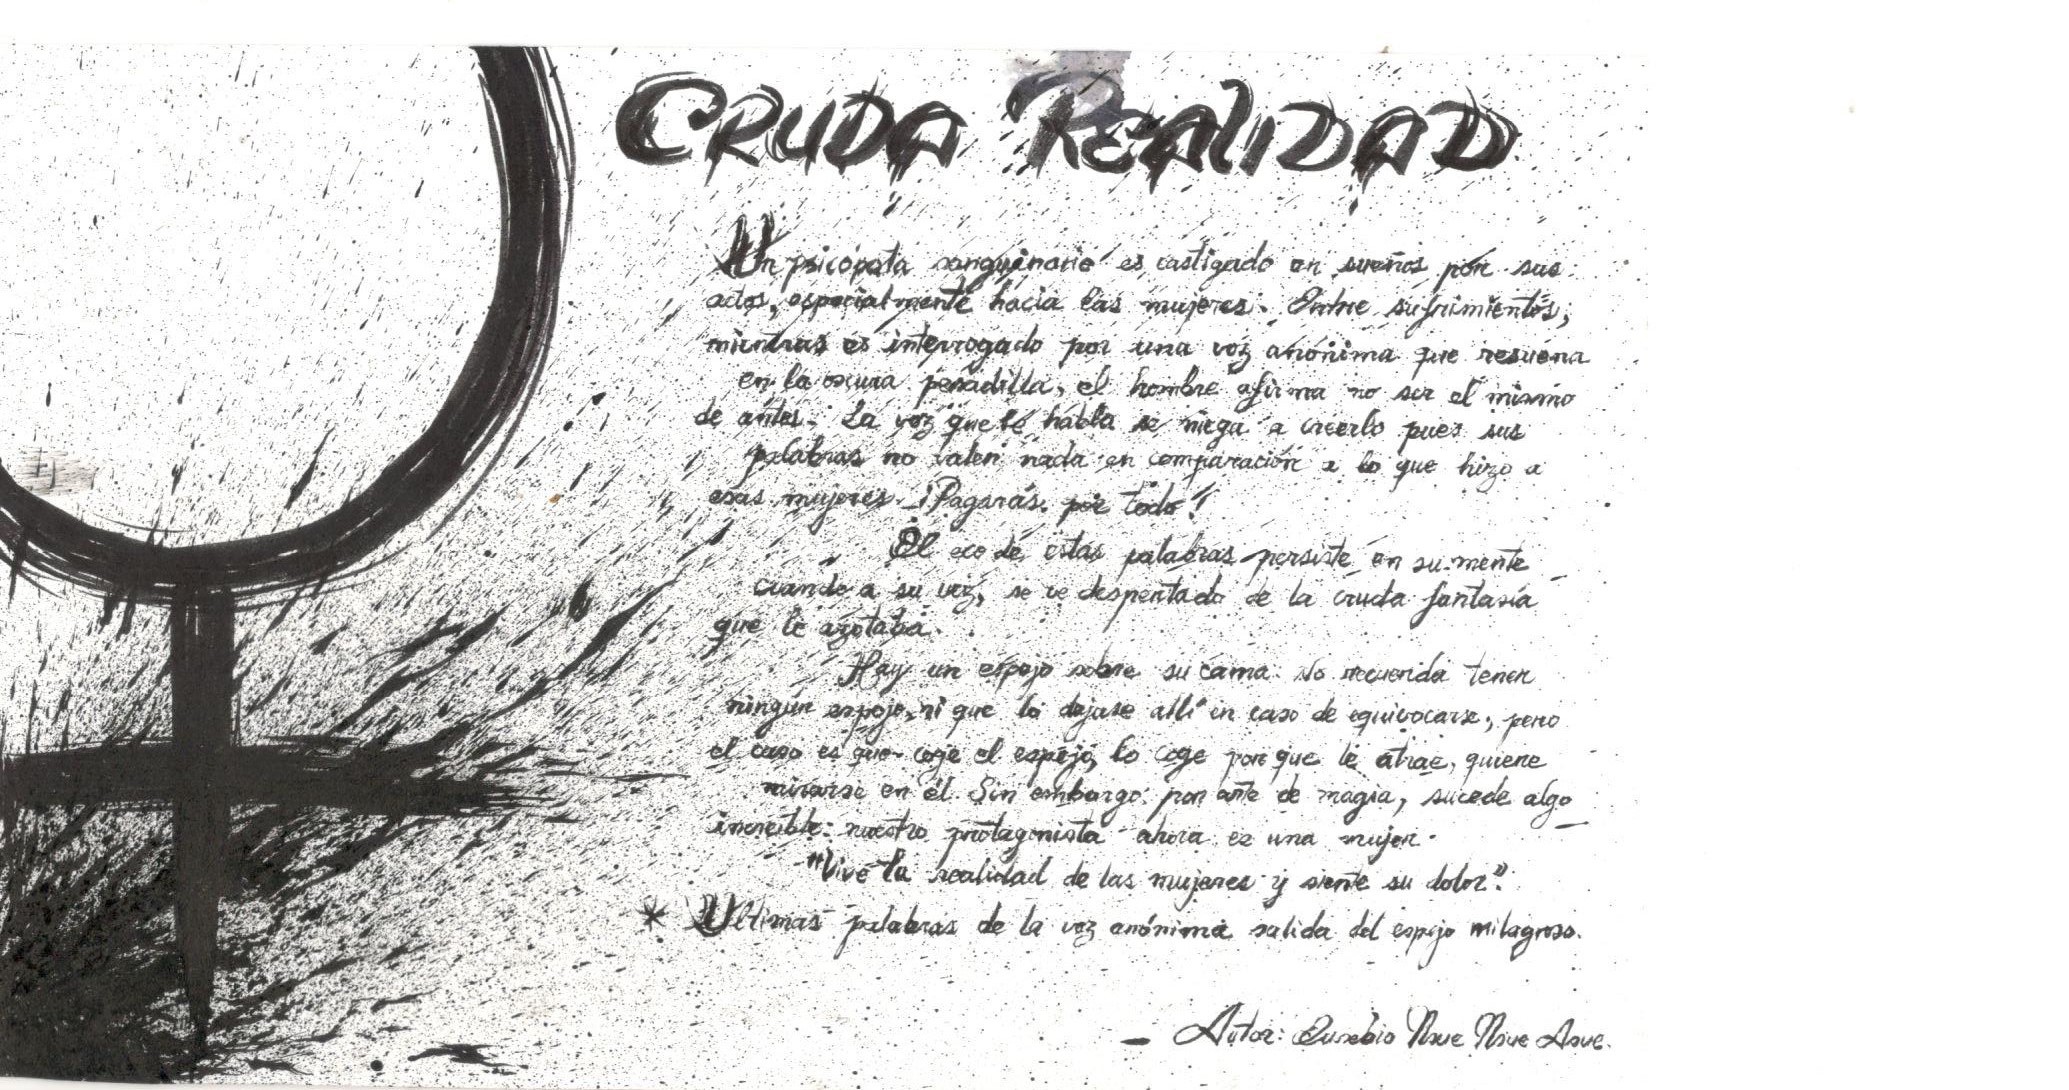 CRUDA REALIDAD
Un psicópata sanguinario es castigado en sueños por sus
actos, especialmente hacia las mujeres. Entre sufrimientos,
mientras es interrogado por una voz anónima que resuena
en la oscura pesadilla, el hombre afirma no ser el mismo
de antes. La voz que le habla se niega a creerlo pues sus
palabras no valen nada en comparación a lo que hizo a
esas mujeres. ¡Pagarás por todo!
El eco de estas palabras persiste en su mente
cuando a su vez, se ve despertado de la cruda fantasía
que le azotaba.
Hay un espejo sobre su cama. No recuerda tener
ningún espejo, ni que lo dejase allí en caso de equivocarse, pero
el caso es que coge el espejo, lo coge por que le atrae, quiere
mirarse en él. Sin embargo, por arte de magia, sucede algo
increíble: nuestro protagonista ahora es una mujer.
"Vive la realidad de las mujeres y siente su dolor".
* Ultimas palabras de la voz anónima salida del espejo milagroso.
- Autor: Eusebio Nsue Nsue Asue.